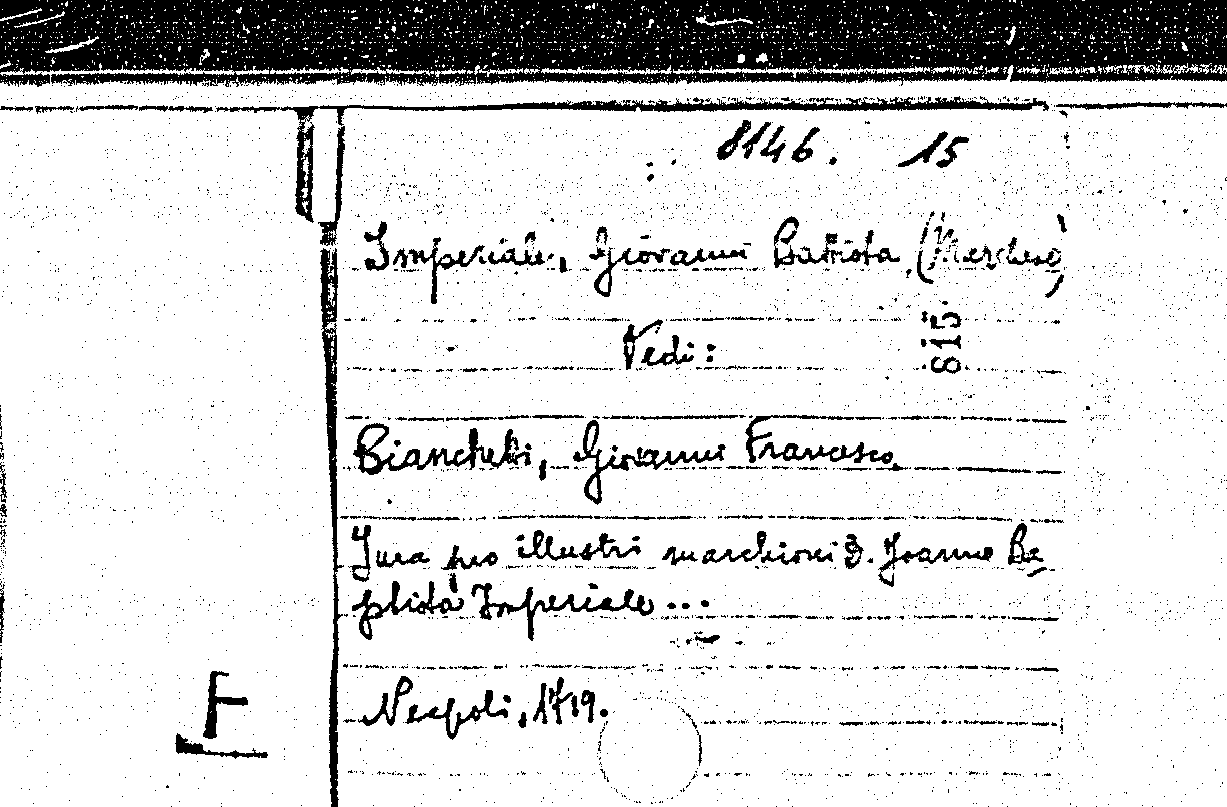 8146. 15
Imperiale, Giovanni Battista (Marchese)
Vedi:
815
Bianchetti, Giovanni Francesco
Jura pro illustri marchioni D. Joanne Ba-
ptista Imperiale...
Neapoli, 1719.
F